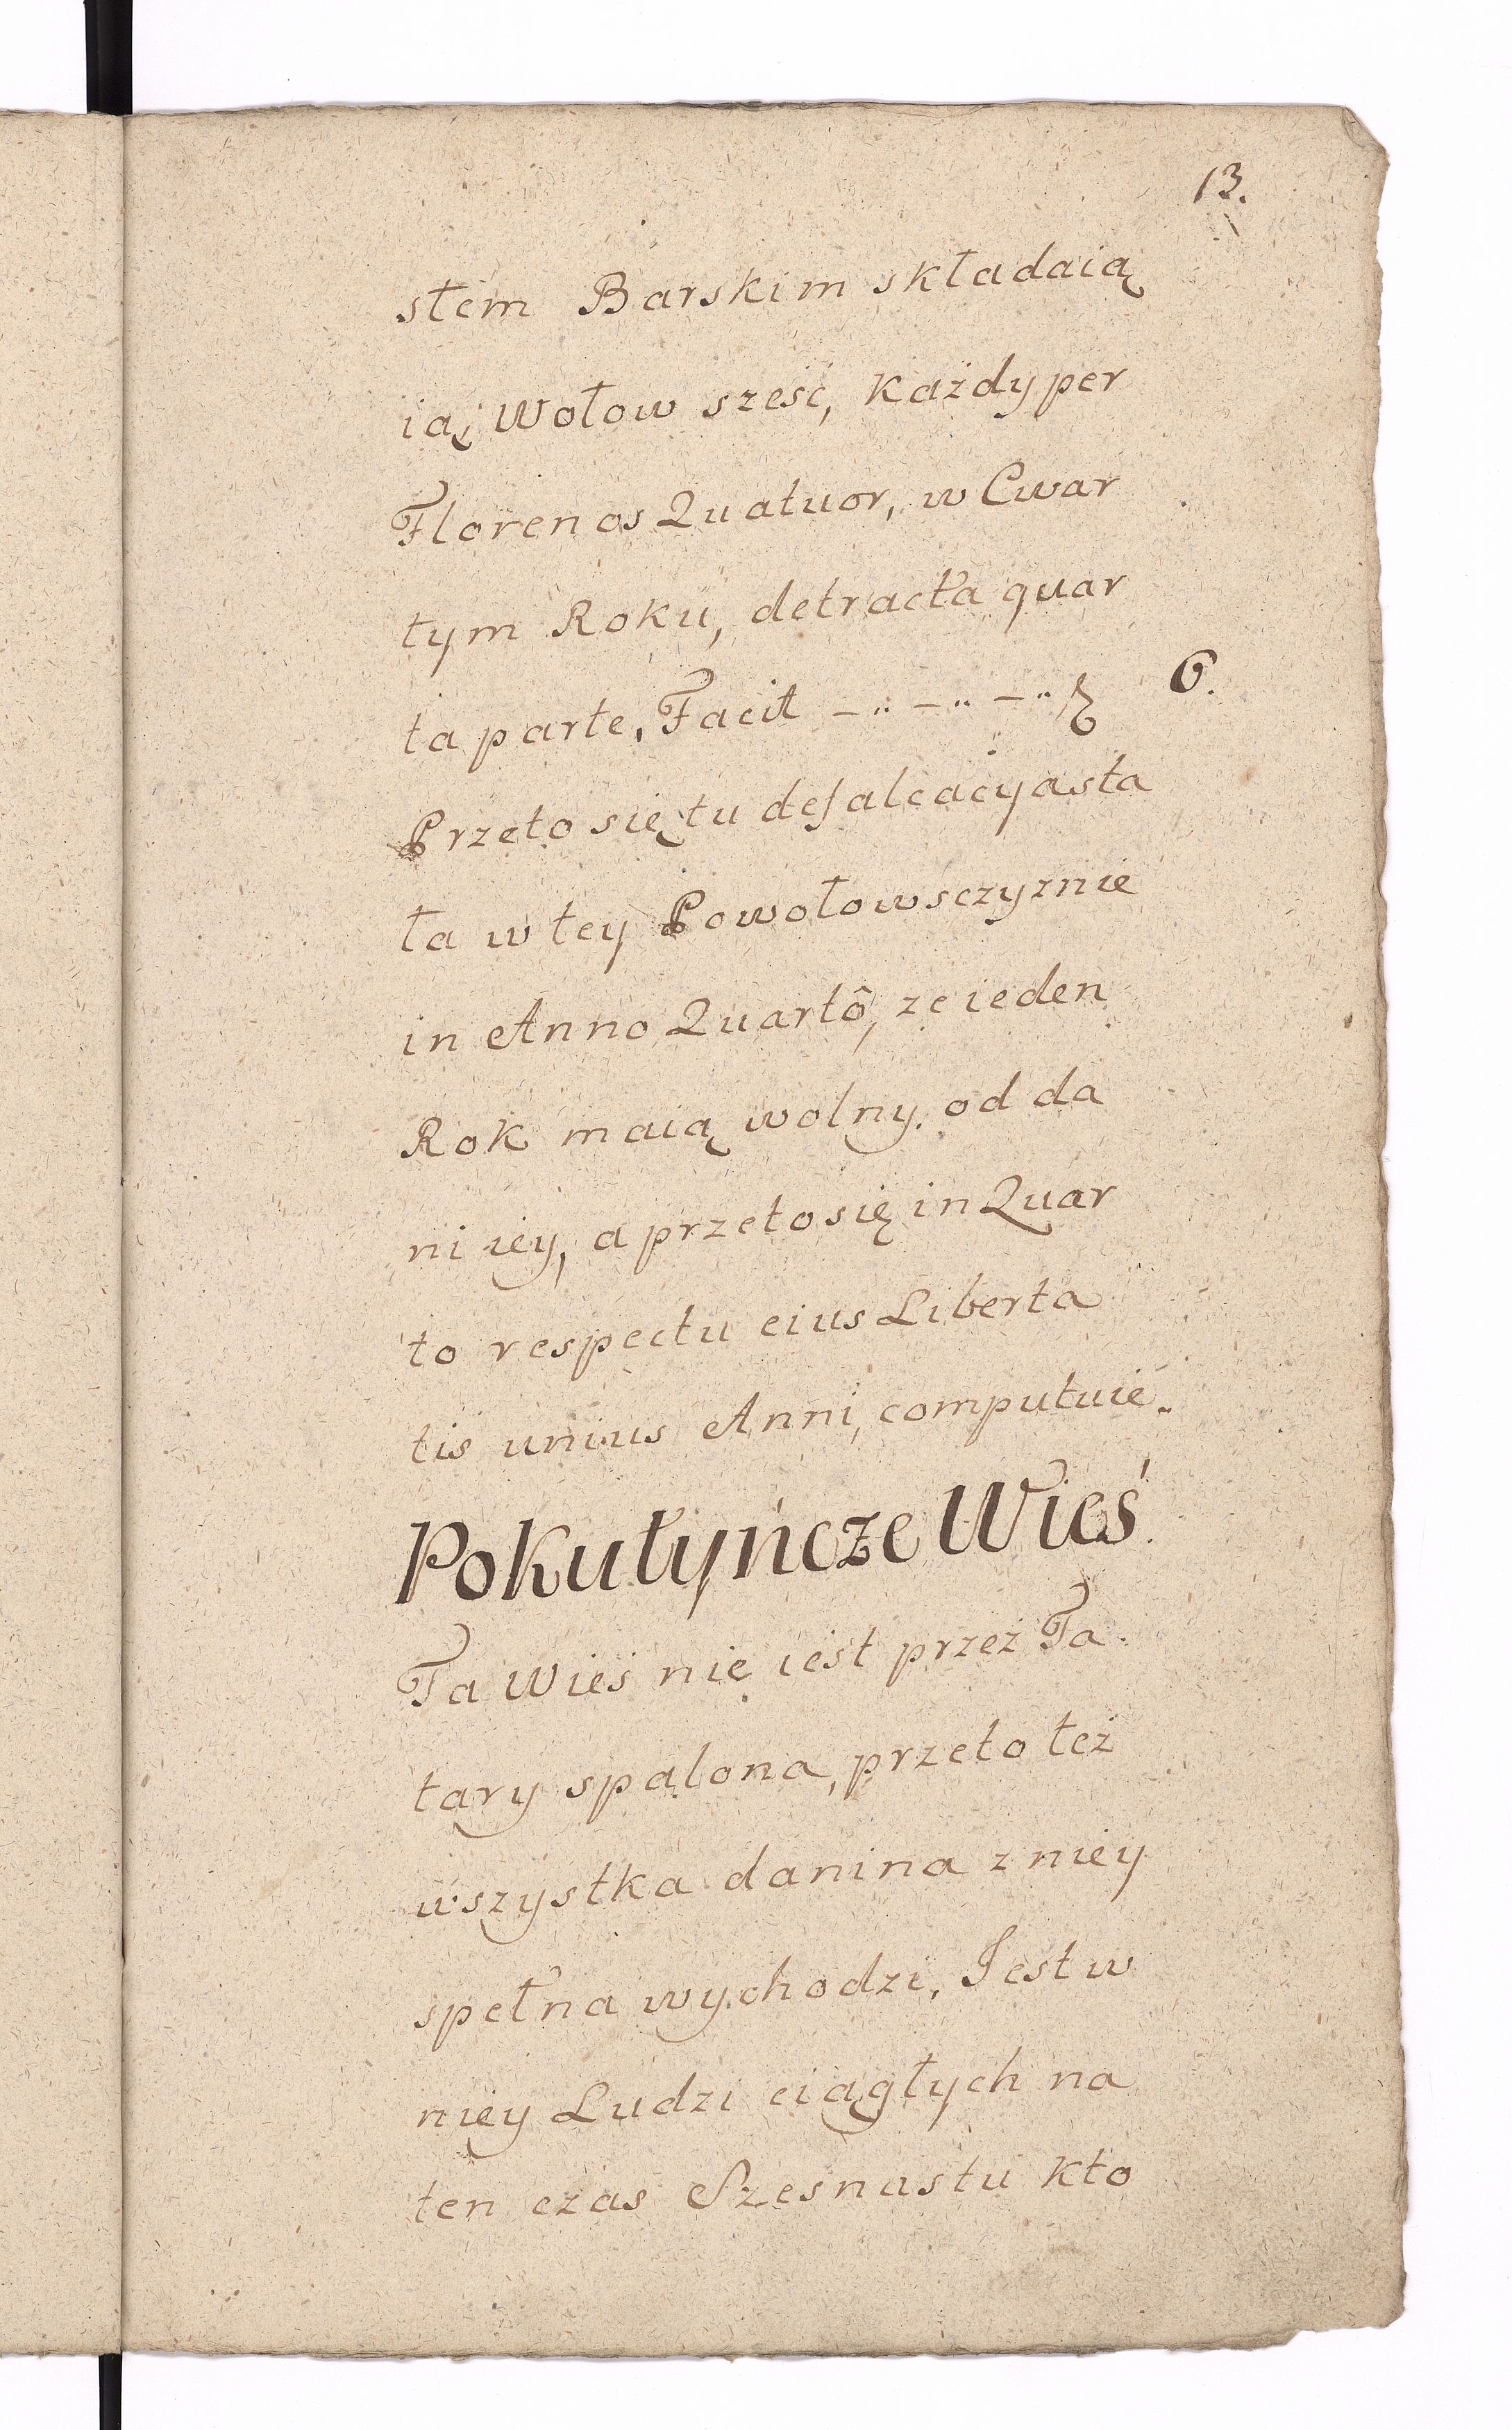 13.
stem Barskim składaią
ią Wołow sześć, każdy per
Florenos Quatuor, w Cwar
tym Roku, detracta quar
ta parte, Facit 6.
Przeto się tu defalcacya sta
ła w tey Powołowsczyznie
in Anno Quartô, ze ieden
Rok maią wolny od da
ni iey, a przeto się in Quar
to respectu eius Liberta
tis unius Anni, computuie.
Pokutyńcze Wieś
Ta Wieś nie iest przez Ta
tary spalona, przeto też
wszystka danina z niey
spełna wychodzi, Jest w
niey Ludzi ciągłych na
ten czas Szesnastu kto